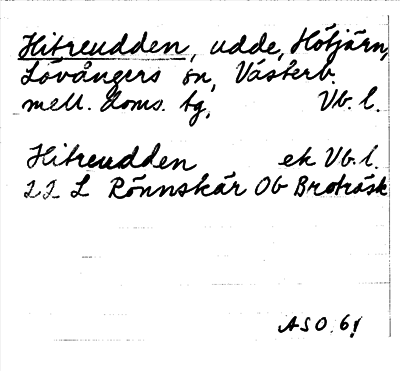 Hitreudden, udde, Hötjärn,
Lövångers sn, Västerb.
mell. Doms. tg, Vb. l.
Hitreudden ek Vb. l.
22 L Rönnskär Ob Broträsk
ASO. 61